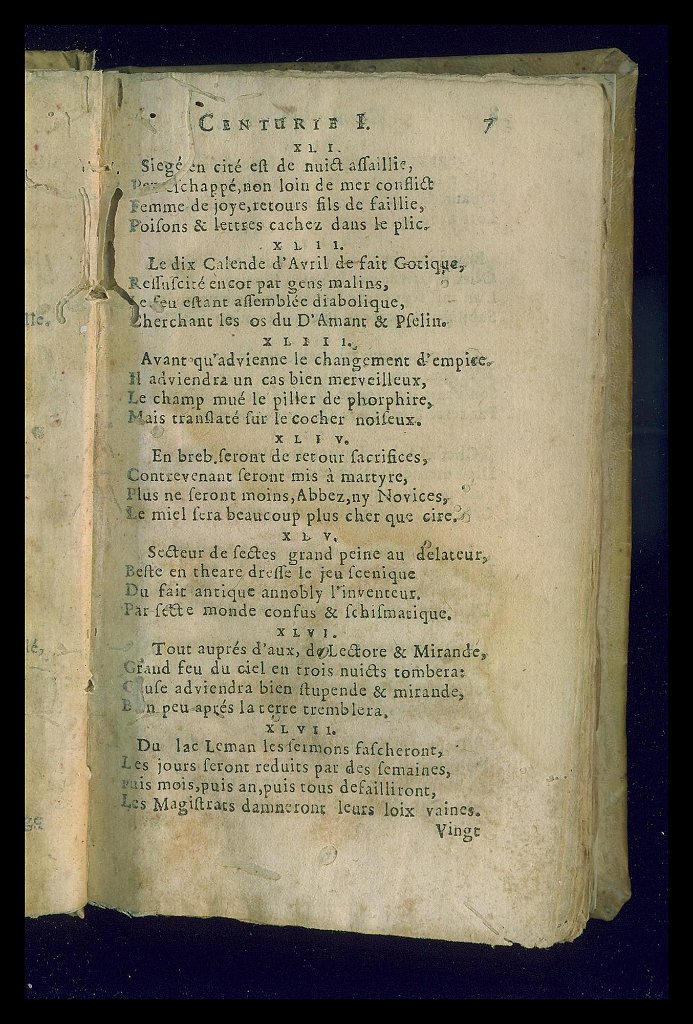 CENTURIE I. 7
XLI.
Siegé en cité eſt de nuict aſſaillie,
eſchappé, non loin de mer conflict
Femme de joye, retours fils de faillie,
Poiſons & lettres cachez dans le plic.
XLII.
Le dix Calende d'Avril de fait Gotique,
Reſſuſcité encor par gens malins,
Le feu eſtant aſſemblée diabolique,
Cherchant les os du D'Amant & Pſelin.
XLIII.
Avant qu'advienne le changement d'empire,
Il adviendra un cas bien merveilleux,
Le champ mué le piller de phorphire,
Mais tranſlaté ſur le cocher noiſeux.
XLIV.
En breb. ſeront de retour ſacrifices,
Contrevenant ſeront mis à martyre,
Plus ne ſeront moins, Abbez, ny Novices,
Le miel ſera beaucoup plus cher que cire.
XLV.
Secteur de ſectes grand peine au delateur,
Beſte en theare dreſſe le jeu ſcenique
Du fait antique annobly l'inventeur.
Par ſecte monde confus & ſchiſmatique.
XLVI.
Tout auprés d'aux, de Lectore & Mirande,
Grand feu du ciel en trois nuicts tombera:
Cauſe adviendra bien ſtupende & mirande,
Bien peu aprés la terre tremblera.
XLVII.
Du lac Leman les ſermons faſcheront,
Les jours ſeront reduits par des ſemaines,
Puis mois, puis an, puis tous defailliront,
Les Magiſtrats damneront leurs loix vaines.
Vingt